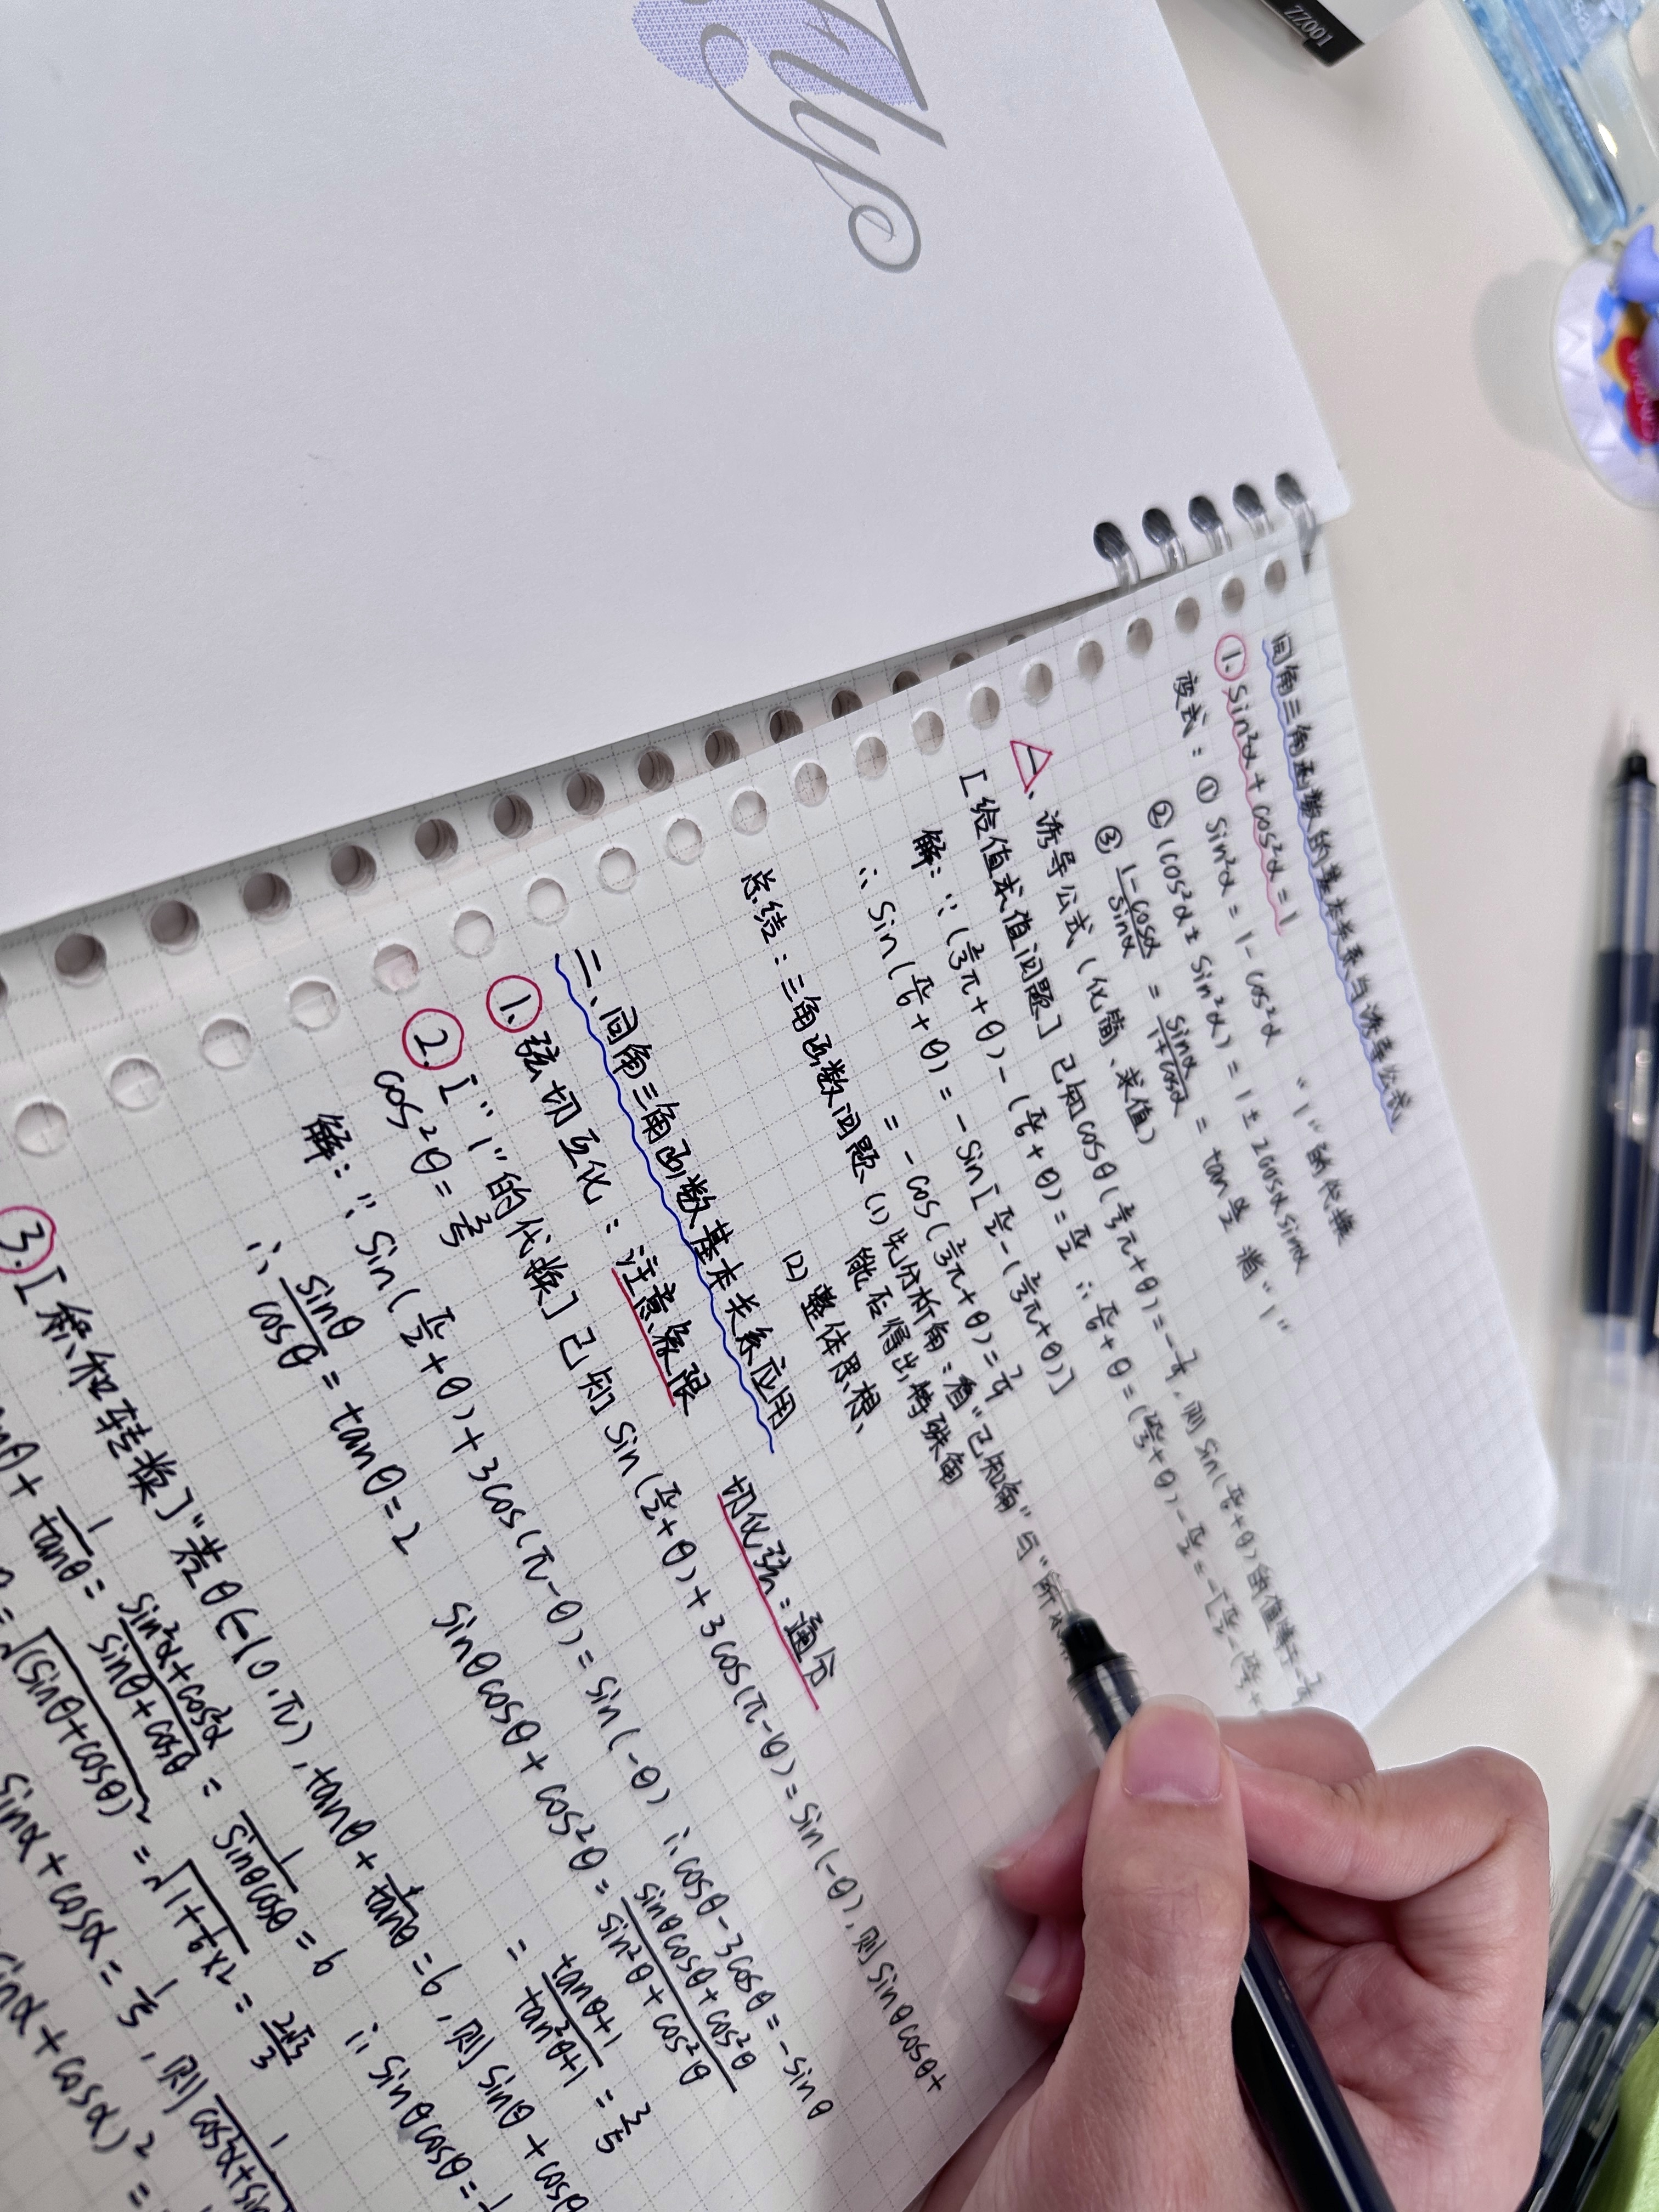 ZZ001
同角三角函数的基本关系与诱导公式
1. sin²α + cos²α = 1
变式：① sin²α = 1 - cos²α "1"的代换
② (cos²α ± sin²α) = 1 ± 2cosα sinα
③ 1-cosα/sinα = sinα/1+cosα = tan α/2 消"1"
一、诱导公式（化简、求值）
[给值求值问题] 已知cosθ(2/3π+θ)=-3/4，则 sin(π/6+θ)的值等于
解：∵(2/3π+θ)-(π/6+θ)=π/2 ∴π/6+θ=(2π/3+θ)-π/2=-[π/2-(2π/3+
∴ sin(π/6+θ)=-sin[π/2-(2/3π+θ)]
=-cos(2/3π+θ)=3/4
总结：三角函数问题 (1) 先分析角：看"已知角"与"所
能否得出特殊角
(2) 整体思想、
二、同角三角函数基本关系应用
1. 弦切互化：注意象限 切化弦：通分
2. ["1"的代换] 已知 sin(π/2+θ)+3cos(π-θ)=sin(-θ)，则sinθcosθ+
cos²θ=3/5
解：∵ sin(π/2+θ)+3cos(π-θ)=sin(-θ) ∴cosθ-3cosθ=-sinθ
∴ sinθ/cosθ=tanθ=2 sinθcosθ+cos²θ=sinθcosθ+cos²θ/sin²θ+cos²θ
=tanθ+1/tan²θ+1=3/5
3. [积和转换]"若θ∈(0,π)，tanθ+1/tanθ=6，则sinθ+cosθ
nθ+1/tanθ=sin²α+cos²α/sinθ+cosθ=1/sinθcosθ=6 ∴sinθcosθ=1
=√(sinθ+cosθ)²=√1+1/6×2=2√3/3
sinα+cosα=1/5，则 1/cosα+sin
sinα+cosα)²=